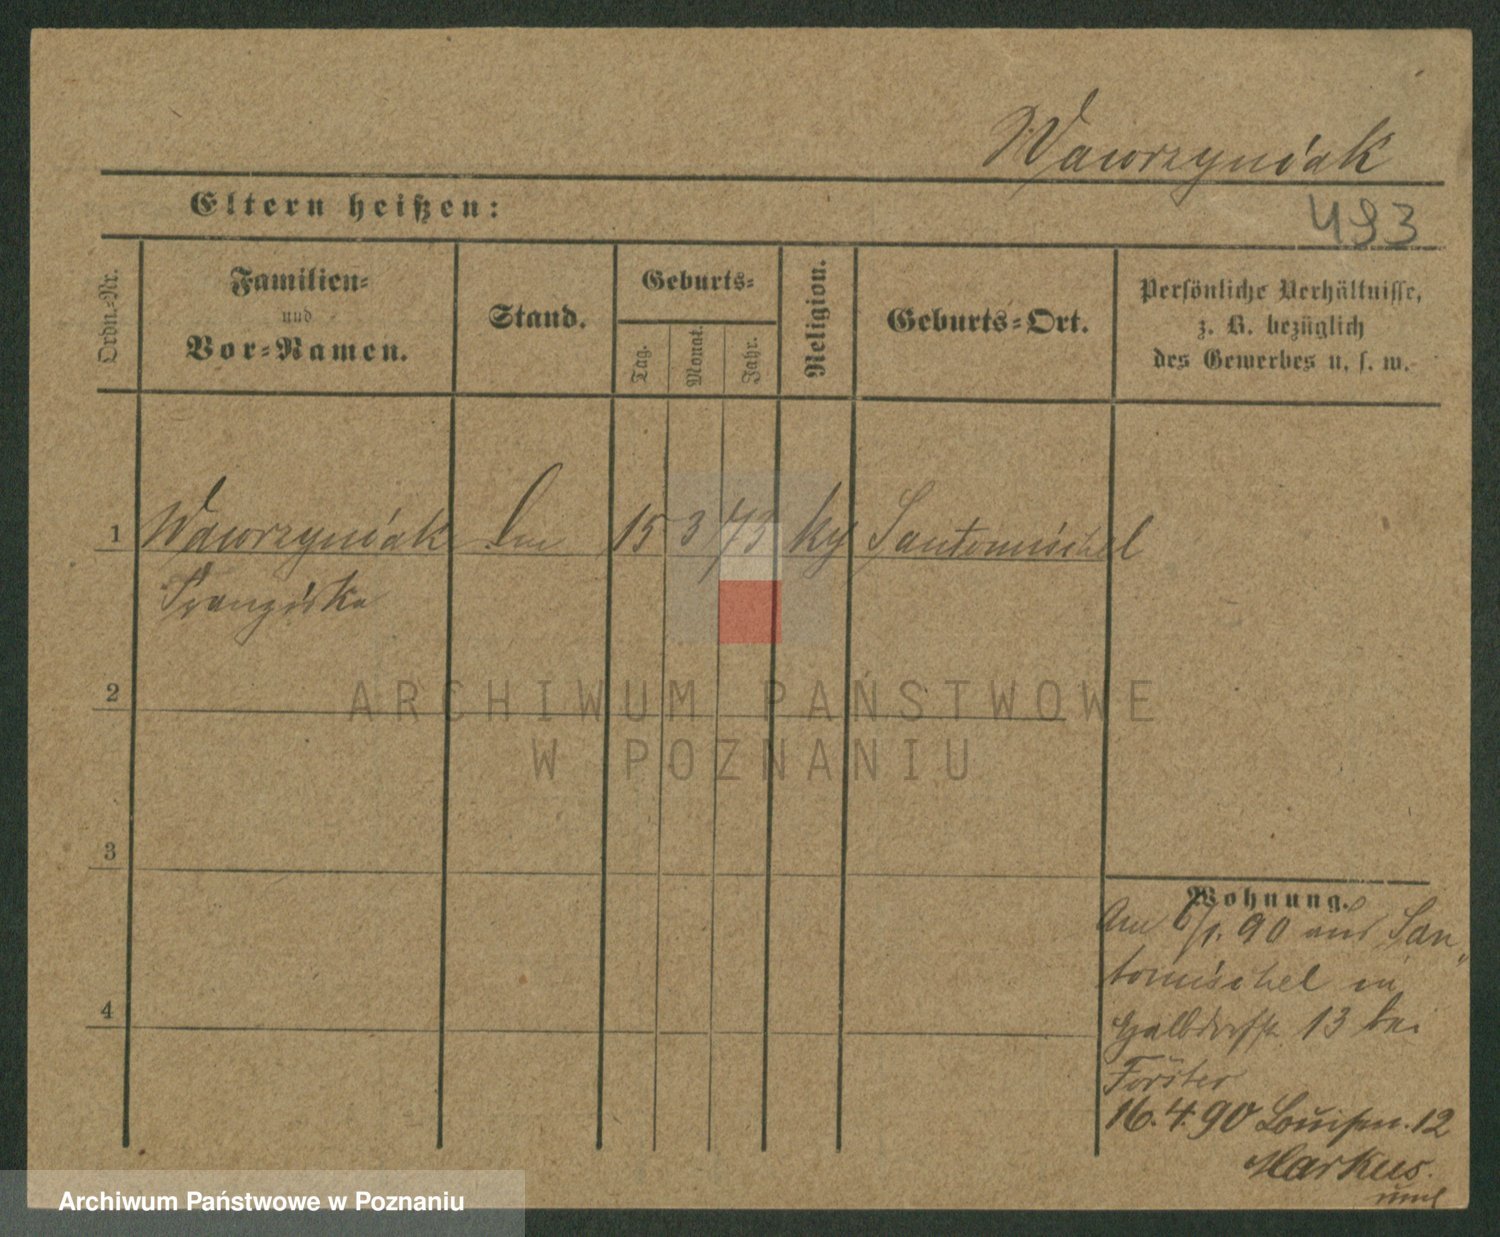 Wawrzyniak
Eltern heißen:
493
Ordn.-Nr.
Familien-
und
Vor-Namen.
Stand.
Geburts-
Tag.
Monat.
Jahr.
Religion.
Geburts-Ort.
Persönliche Verhältnisse,
z. B. bezüglich
des Gewerbes u. s. w.
1 Wawrzyniak 15 3 73 Santomischel
Franziska
2
ARCHIWUM PAŃSTWOWE
W POZNANIU
3
Wohnung.
Am 6/1. 90 aus San-
tomischel in
Halbdorfstr. 13 bei
Förster
16.4.90 Louisen. 12
Markus.
4
Archiwum Państwowe w Poznaniu